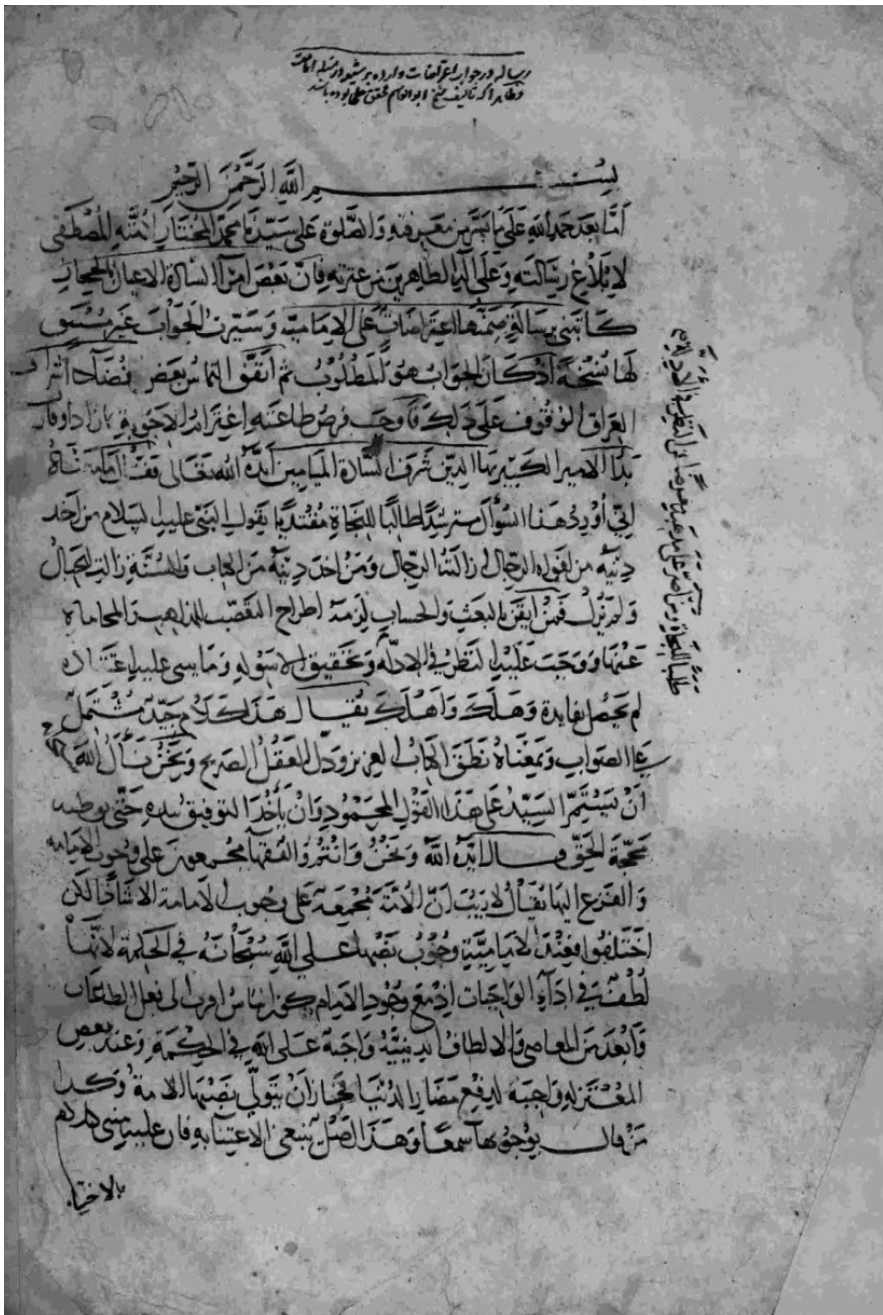 رساله در جواب اعتراضات وارده بر شیعه در مسئله امامت
و ظاهرا که تالیف شیخ ابوالقاسم محقق حلی بوده باشد
بسم الله الرحمن الرحیم
اما بعد حمد الله علی ما یسر من معرفته والصلوة علی سیدنا محمد المختار المصطفی
لابلاغ رسالته وعلی آله الطاهرین من عترته فان بعض امرآ السادة الاعیان بالحجاز
کاتبنی برسالة ضمنها اعتراضات علی الامامیه وسیرت الجواب غیر مستبق
لها نسخة اذ کان الجواب هو المطلوب ثم اتفق التماس بعض فضلآء اشراف
العراق الوقوف علی ذلک فاوجب فرض طاعته
بدا الامیر الکبیر بهاالدین شرف السادة المیامین ایده الله تعالی فقال
انی اورد هذا السؤال مسترشدا طالبا للنجاة مقتدیا بقول النبی علیه السلام من اخذ
دینه من افواه الرجال ازالته الرجال ومن اخذ دینه من الکتاب والسنة زالت الجبال
ولم یزل فمن ایقن بالبعث والحساب لزمه اطراح التعصب للمذاهب والمحاماة
عنها ووجب علیه النظر فی الادله وتحقیق الاسوله
لم یحصل بفایدة وهلک واهلک یقال هذا کلام جید مشتمل
علی الصواب وبمعناه نطق الکتاب العزیز ودل العقل الصریح ونحن نسأل الله
ان یستمر السید علی هذا القول المحمود وان یأخذ التوفیق بیده حتی
محجة الحق قال ایده الله ونحن وانتم والفقهآ مجمعون علی وجوب الامامه
والفزع الیها یقال لا ریب ان الامة مجمعة علی وجوب الامامة الا شاذا لکن
اختلفوا فعند الامامیة وجوب نصبها علی الله سبحانه فی الحکمة لانها
لطف فی ادآء الواجبات اذ مع وجود الامام یکون الناس اقرب الی فعل الطاعات
وابعد من المعاصی والالطاف الدینیة واجبة علی الله فی الحکمة وعند بعض
المعتزله واجبة لدفع مضار الدنیا فجاز ان یتولی نصبها الامة وکذا
من قال بوجوبها سمعا وهذا اصل ینبغی الاعتنآ به فان علیه یبنی کلامهم
بالاختیار